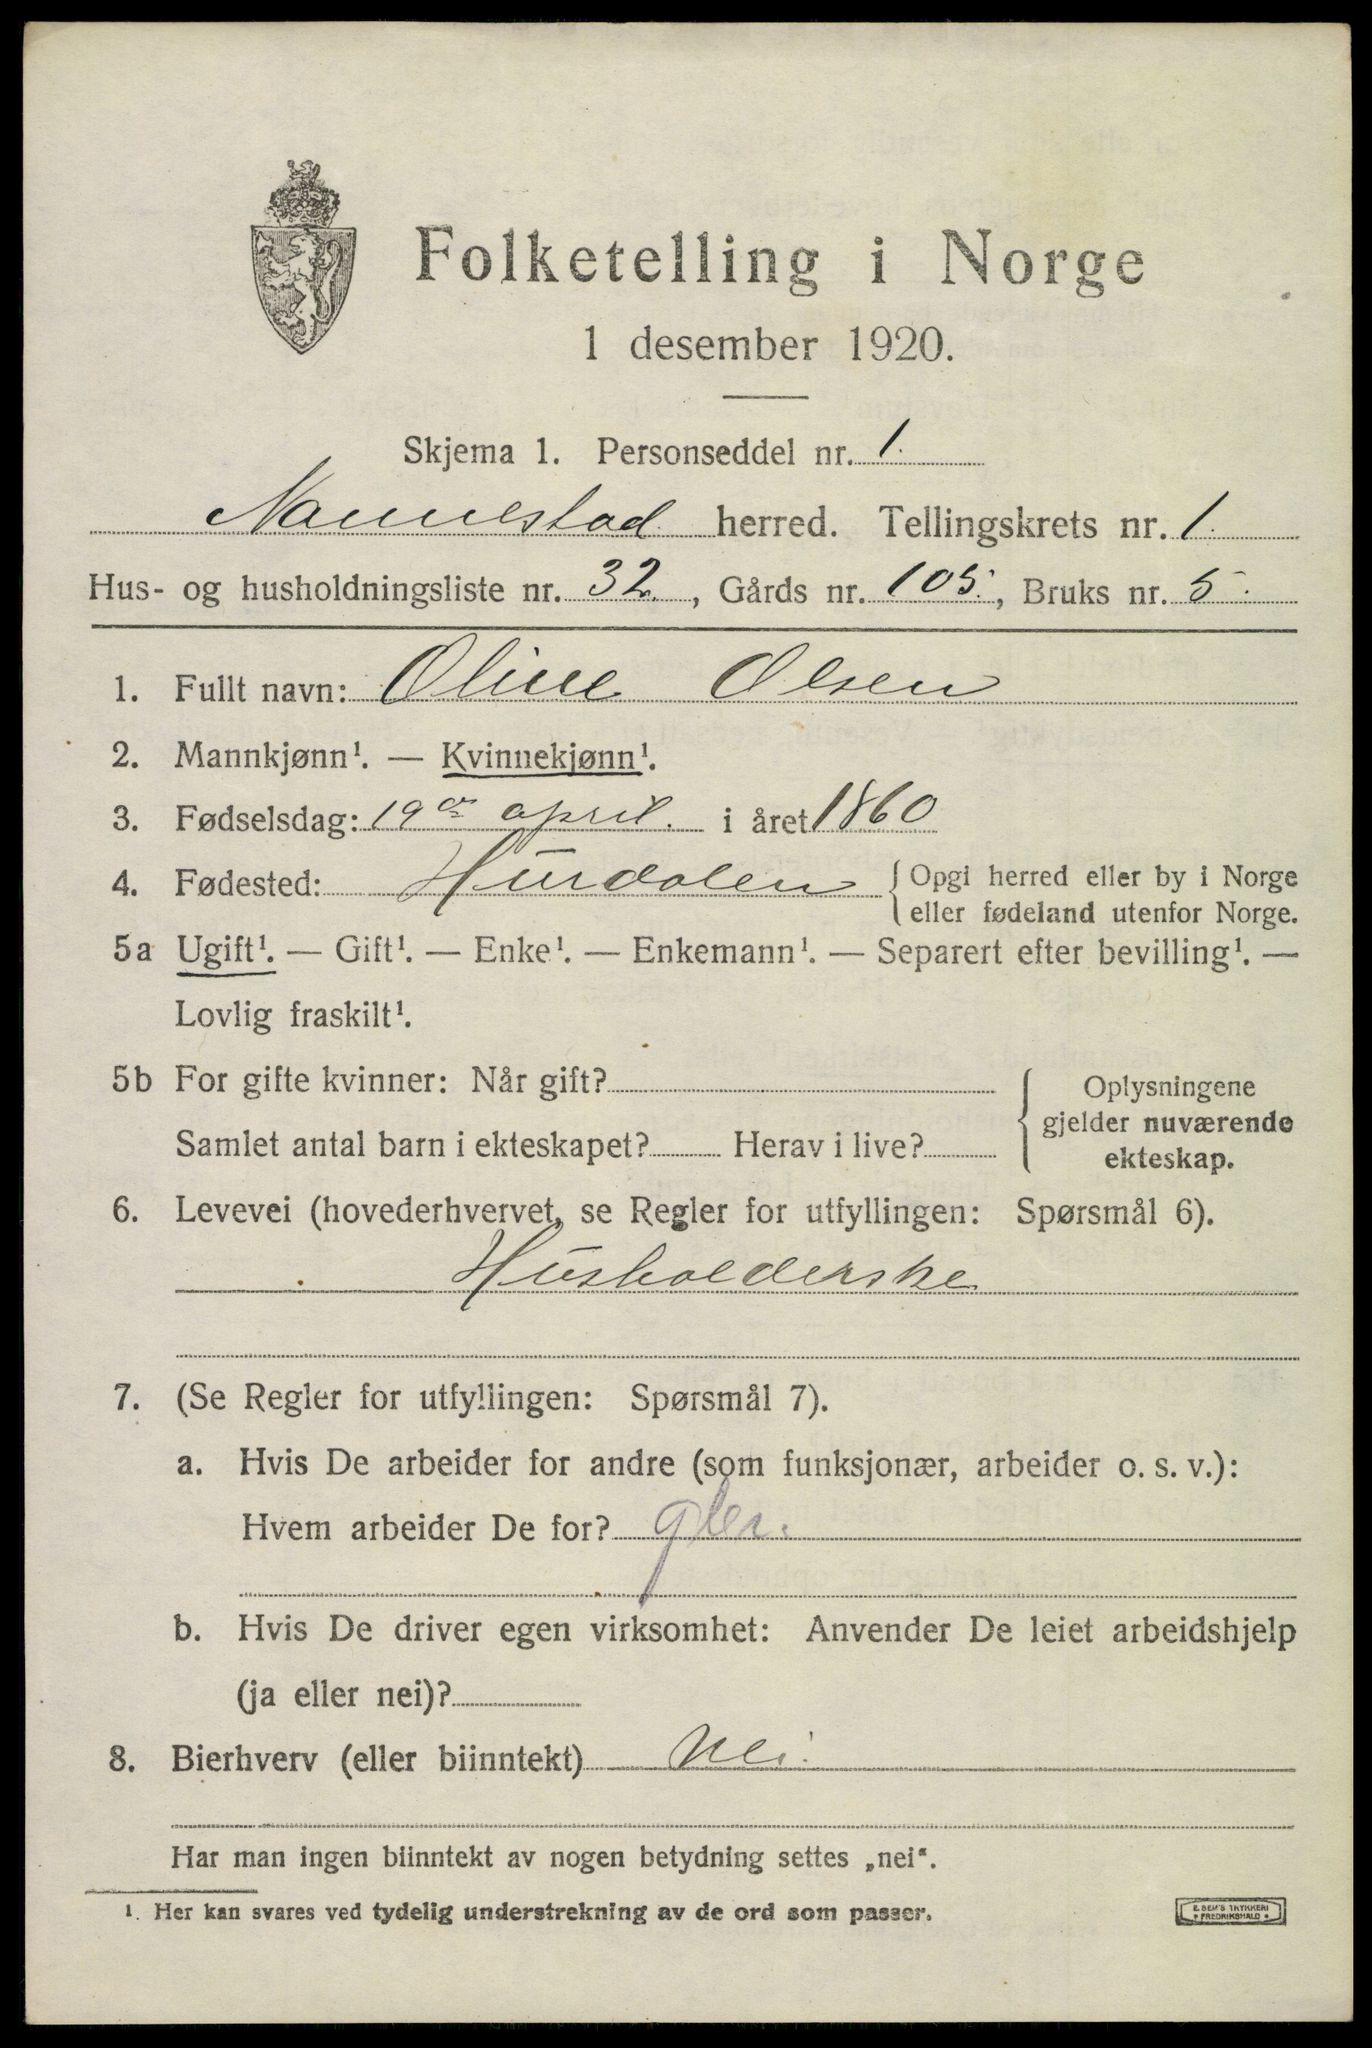 Folketelling i Norge
1 desember 1920.
Skjema 1. Personseddel nr. 1.
Nannestad herred. Tellingskrets nr. 1.
Hus- og husholdningsliste nr. 32., Gårds nr. 105., Bruks nr. 5.
1. Fullt navn: Oline Olsen
2. Mannkjønn¹. — Kvinnekjønn¹.
3. Fødselsdag: 19de april. i året 1860
4. Fødested: Hurdalen { Opgi herred eller by i Norge
eller fødeland utenfor Norge.
5a Ugift¹. — Gift¹. — Enke¹. — Enkemann¹. — Separert efter bevilling¹. —
Lovlig fraskilt¹.
5b For gifte kvinner: Når gift? { Oplysningene
gjelder nuværende
Samlet antal barn i ekteskapet? Herav i live? ekteskap.
6. Levevei (hovederhvervet, se Regler for utfyllingen: Spørsmål 6).
Husholderske
7. (Se Regler for utfyllingen: Spørsmål 7).
a. Hvis De arbeider for andre (som funksjonær, arbeider o. s. v.):
Hvem arbeider De for?
b. Hvis De driver egen virksomhet: Anvender De leiet arbeidshjelp
(ja eller nei)?
8. Bierhverv (eller biinntekt) Nei.
Har man ingen biinntekt av nogen betydning settes „nei“.
¹. Her kan svares ved tydelig understrekning av de ord som passer.
E. SEM'S TRYKKERI
• FREDRIKSHALD •